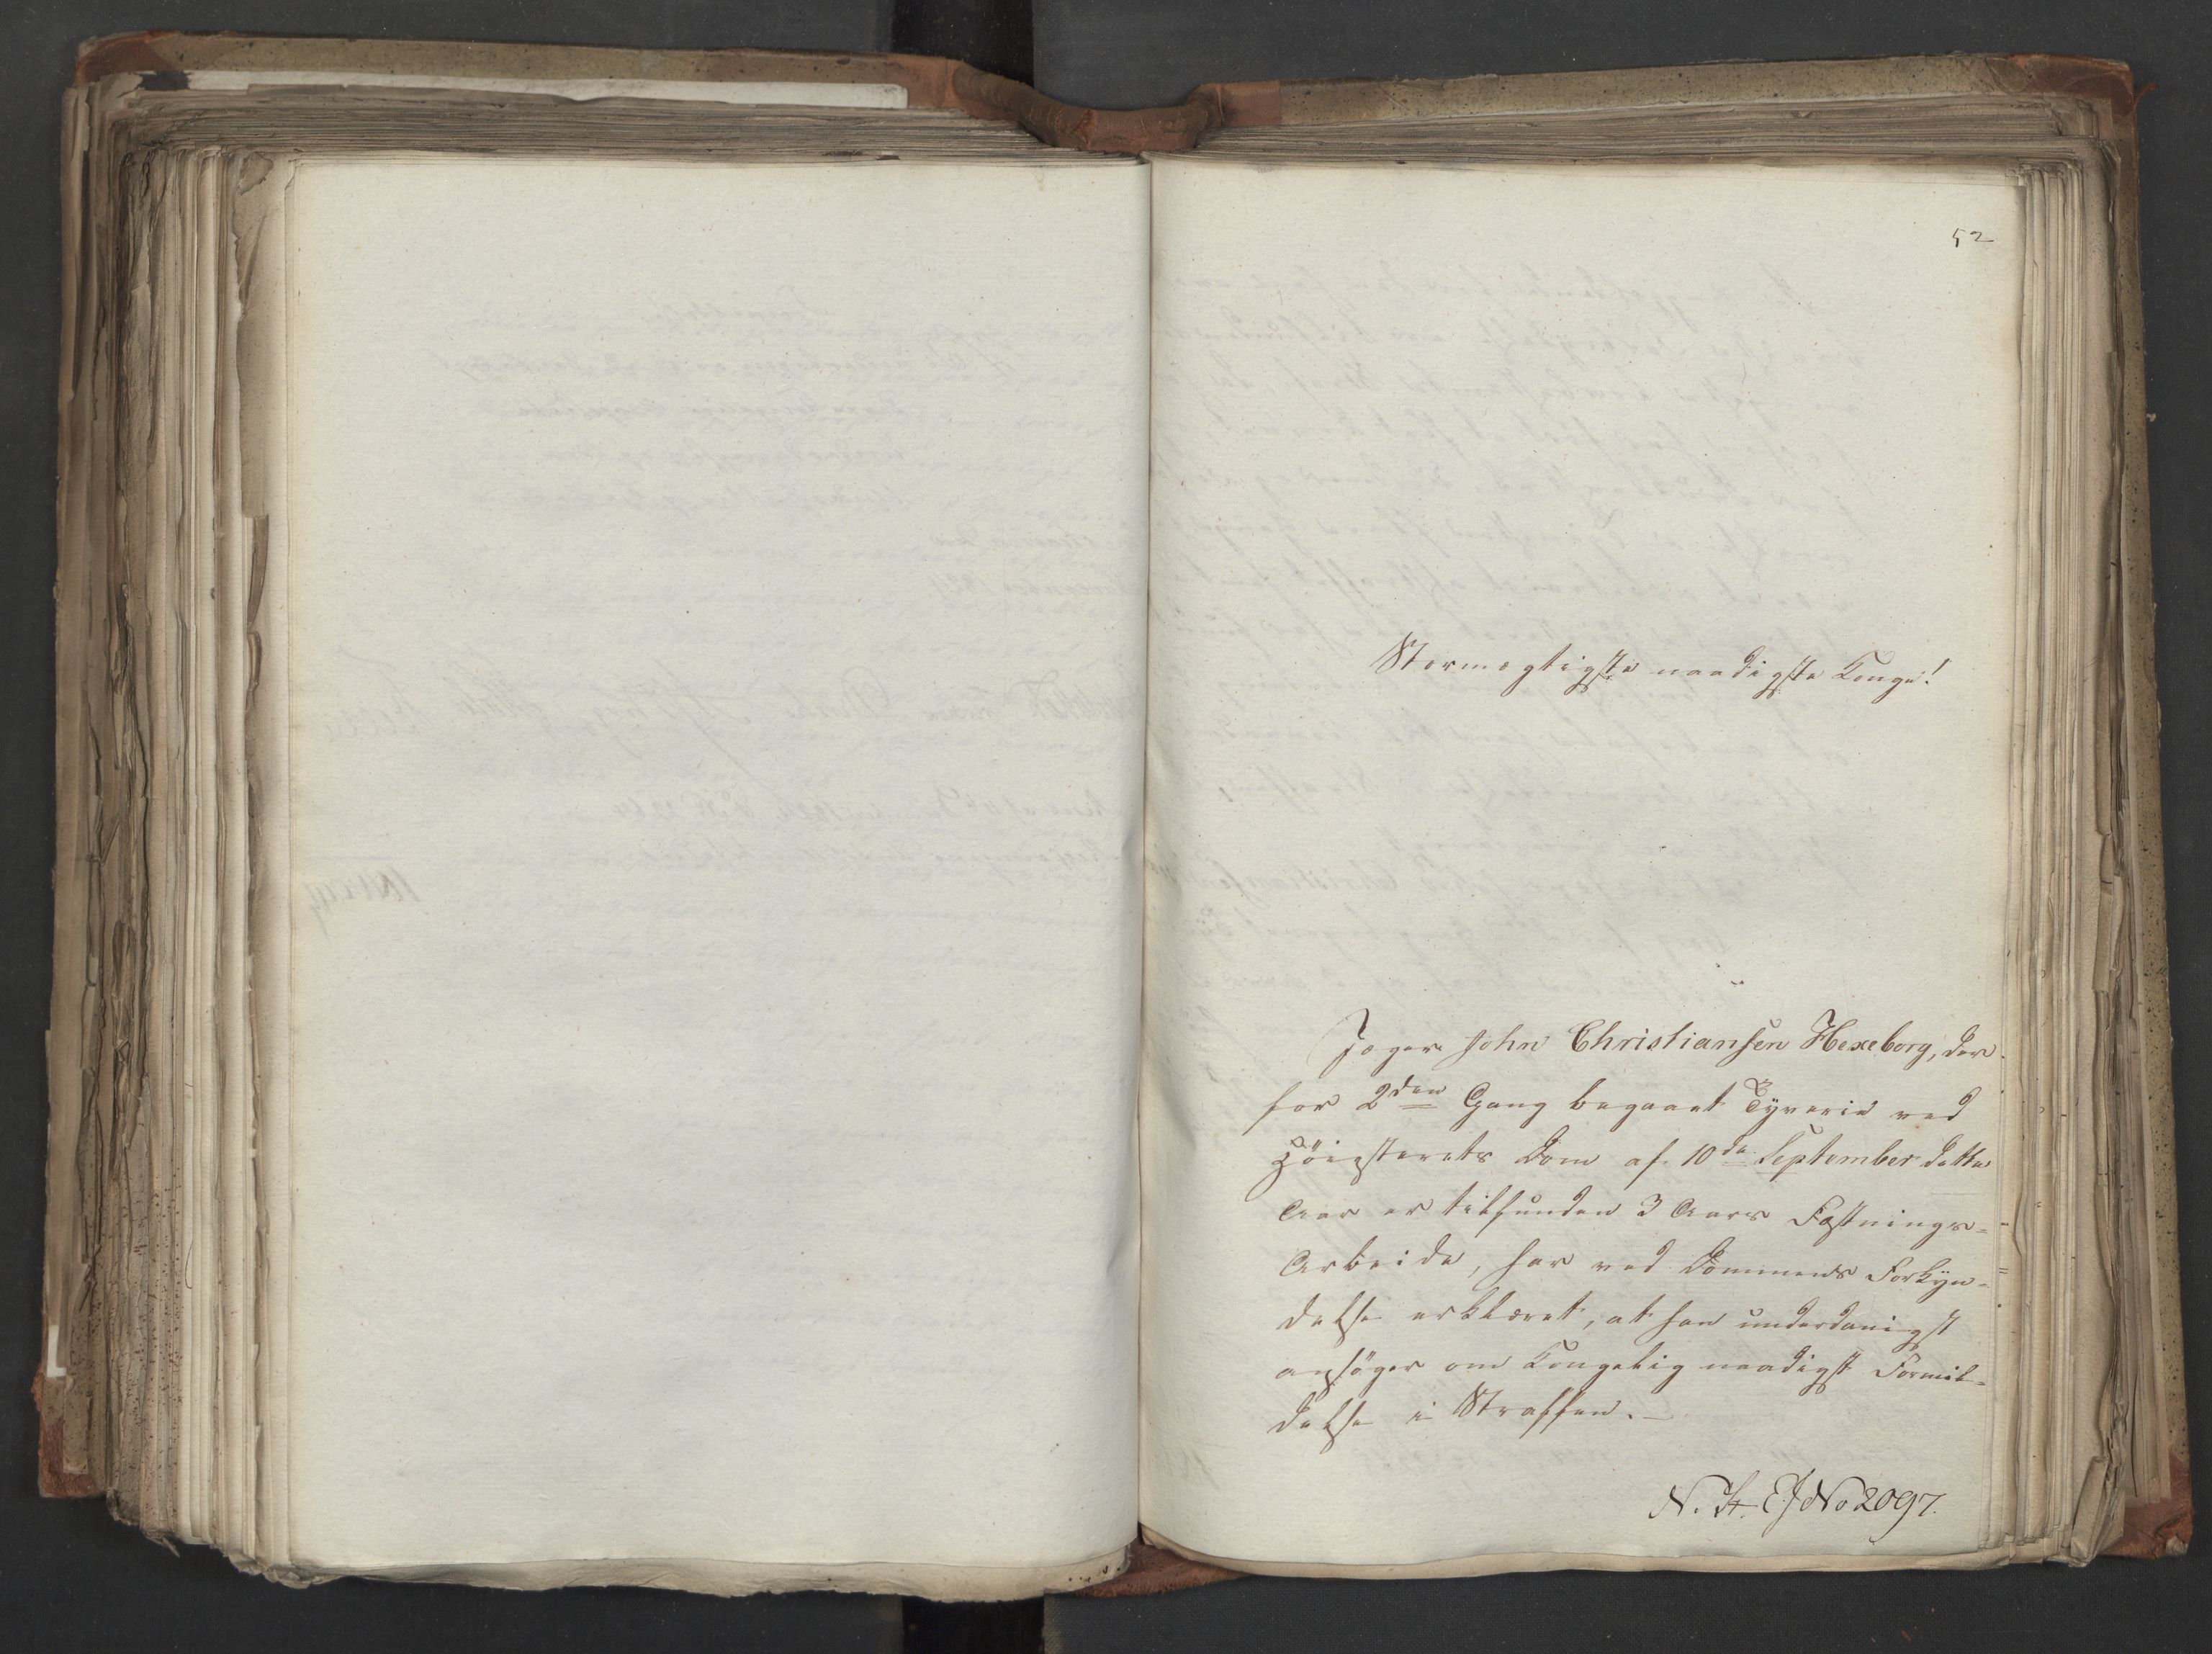 52
Stormægtigste naadigste Konge!
Jæger John Christiansen Hexeborg, der
for 2den Gang begaaet Tyverie ved
Höiesterets Dom af 10de September dette
Aar er tilfunden 3 Aars Fæstnings-
Arbeide, har ved Dommens Forkyn-
delse erklæret, at han underdanigst
ansöger om Kongelig naadigst Formil-
delse i Straffen.
N. St. E J No 2097.